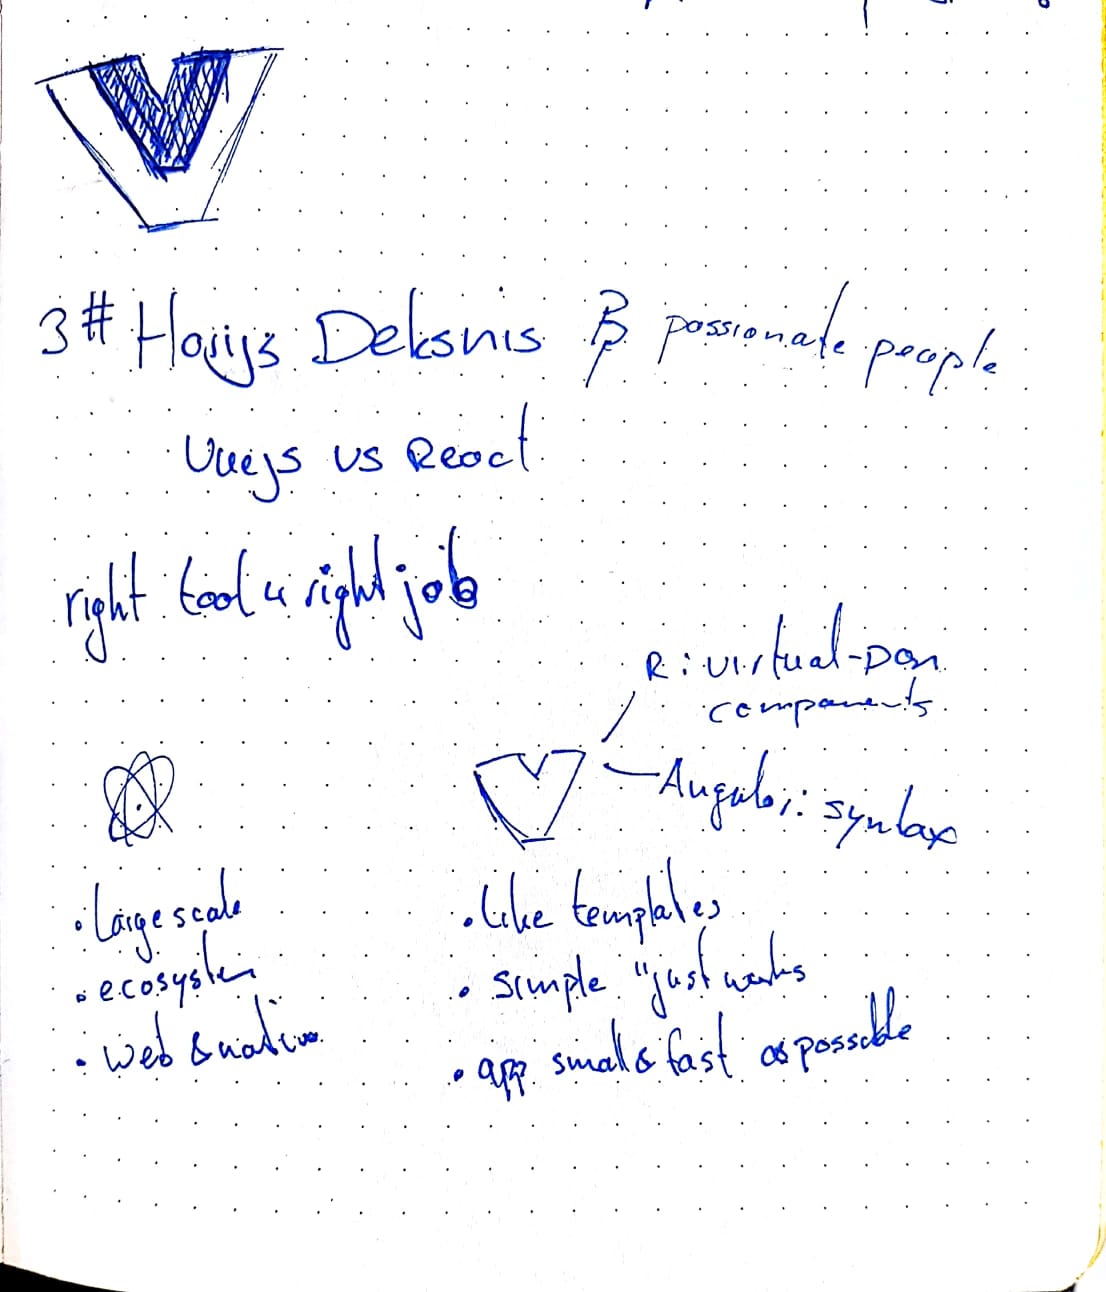 3# Harijs Deksnis passionate people
Vuejs vs React
right tool 4 right job
R: virtual-DOM
components
Angular: syntax
• Large scale
• ecosystem
• web & native
• like templates
• simple "just works
• app small & fast as possible